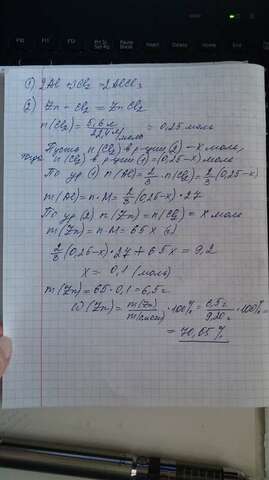 ① 2Al + 3Cl₂ = 2AlCl₃
② Zn + Cl₂ = ZnCl₂
n(Cl₂) = 5,6 л / 22,4 л/моль = 0,25 моль
Пусть n(Cl₂) в р-ции (2) - x моль,
тогда n(Cl₂) в р-ции (1) = (0,25-x) моль
По ур (1) n(Al) = 2/3 · n(Cl₂) = 2/3 (0,25-x)
m(Al) = n·M = 2/3 (0,25-x) · 27
По ур (2) n(Zn) = n(Cl₂) = x моль
m(Zn) = n·M = 65x (г)
2/3 (0,25-x) · 27 + 65x = 9,2
x = 0,1 (моль)
m(Zn) = 65 · 0,1 = 6,5 г
ω(Zn) = m(Zn) / m(смеси) · 100% = 6,5 г / 9,20 г · 100% =
= 70,65%